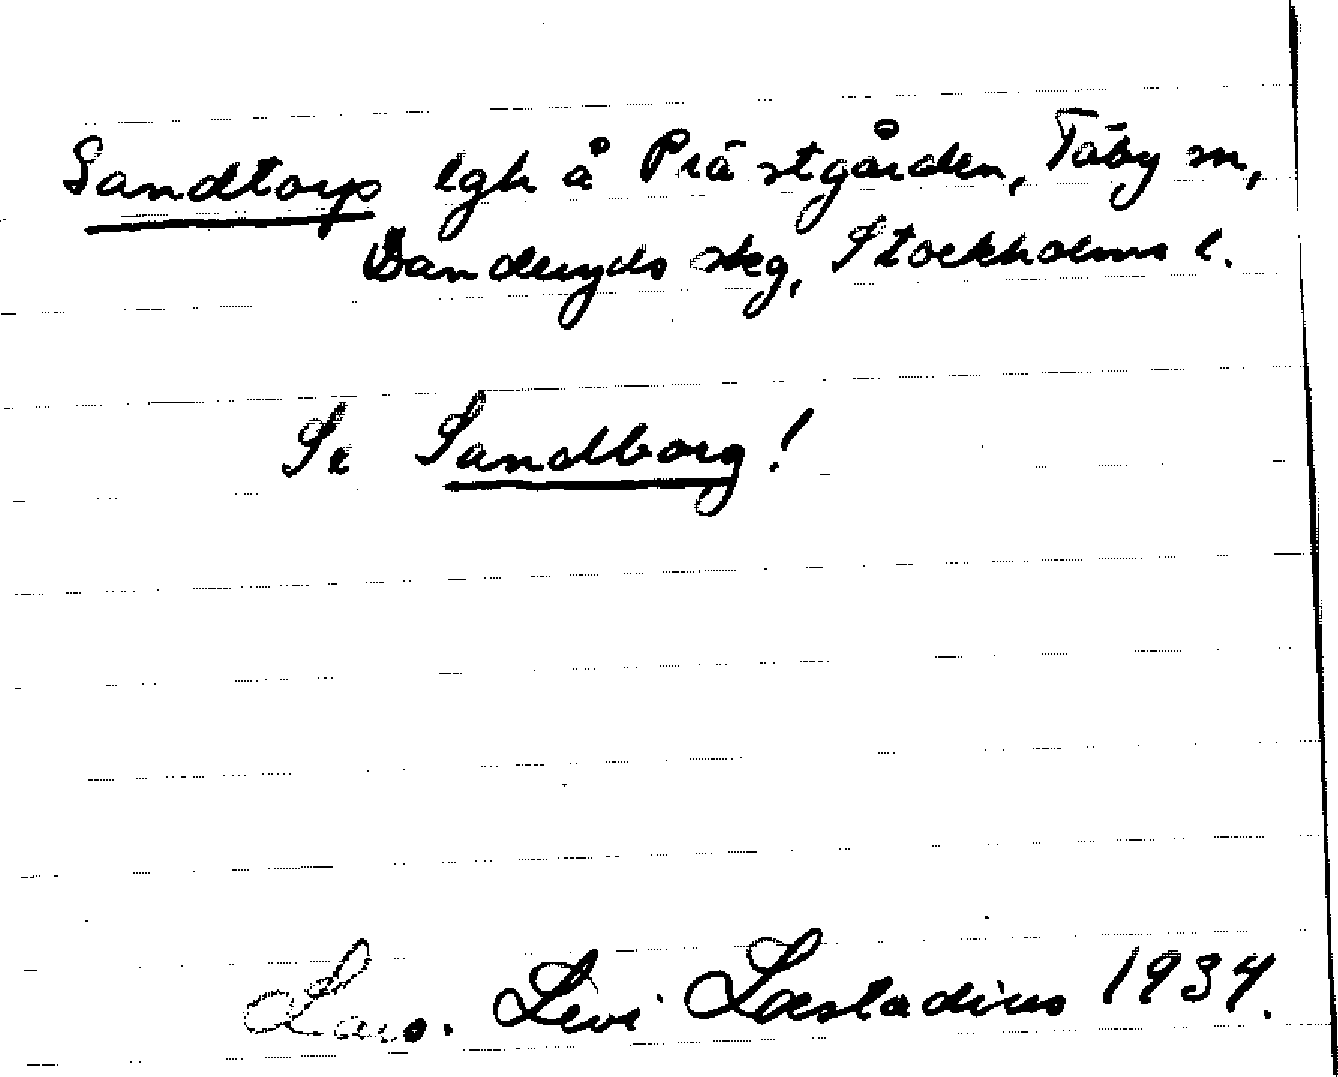 Sandtorp lgh å Prästgården, Täby sn,
Danderyds skg, Stockholms l.
Se Sandborg!
Lars. Levi Læstadius 1934.